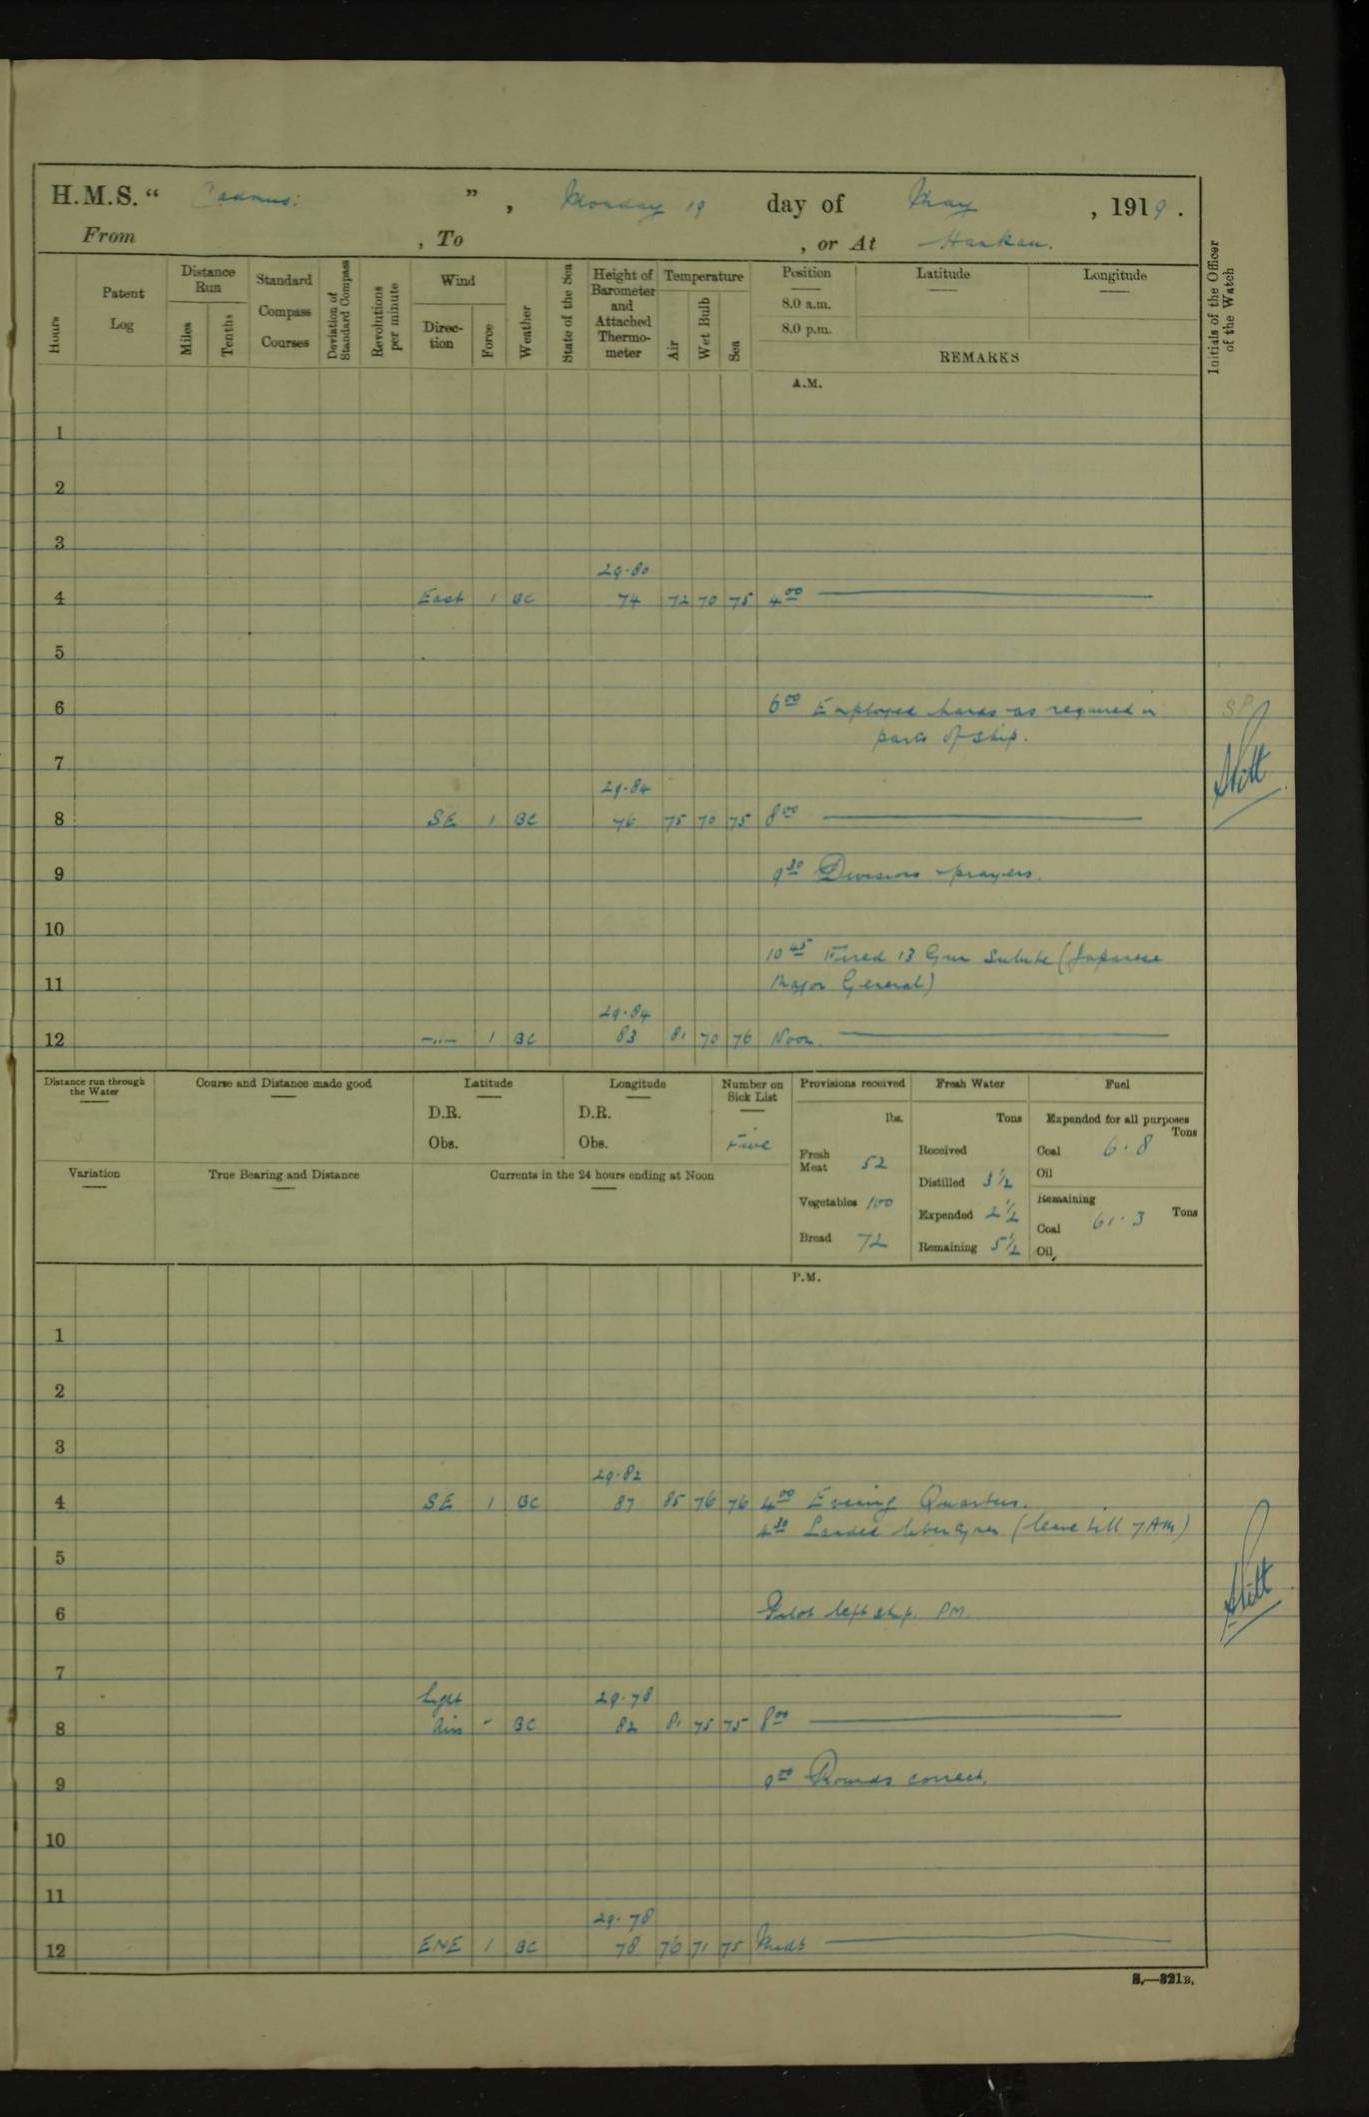 H.M.S. " Cadmus: ", Monday 19 day of May, 1919.
From , To , or At Hankau.
Hours
Patent Log
Distance Run
Miles
Tenths
Standard Compass Courses
Deviation of Standard Compass
Revolutions per minute
Wind
Direc-tion
Force
Weather
State of the Sea
Height of Barometer and Attached Thermo-meter
Temperature
Air
Wet Bulb
Sea
Position
8.0 a.m.
8.0 p.m.
Latitude
Longitude
REMARKS
Initials of the Officer of the Watch
A.M.
1
2
3
29.80
4 East 1 BC 74 72 70 75 4 00
5
6 6 00 Employed hands as required in
parts of ship.
7
29.84
8 SE 1 BC 76 75 70 75 8 00
9 9 30 Divisions & prayers.
10
10 45 Fired 13 Gun Salute (Japanese
11 Major General)
29.84
12 -..- 1 BC 83 81 70 76 Noon.
Distance run through the Water
Course and Distance made good
Latitude
D.R.
Obs.
Longitude
D.R.
Obs.
Number on Sick List
Five
Provisions received
lbs.
Fresh Meat 52
Vegetables 100
Bread 72
Fresh Water
Tons
Received
Distilled 3½
Expended 2½
Remaining 5½
Fuel
Expended for all purposes
Tons
Coal 6.8
Oil
Remaining
Coal 61.3 Tons
Oil
Variation
True Bearing and Distance
Currents in the 24 hours ending at Noon
P.M.
1
2
3
29.82
4 SE 1 BC 87 85 76 76 4 00 Evening Quarters.
4 30 Landed libertymen (leave till 7 AM)
5
6 Pilot left ship. PM.
7
Light 29.78
8 Airs - BC 82 81 75 75 8 00
9 9 00 Rounds correct.
10
11
29.78
12 ENE 1 BC 78 76 71 75 Midt
S.—321B.